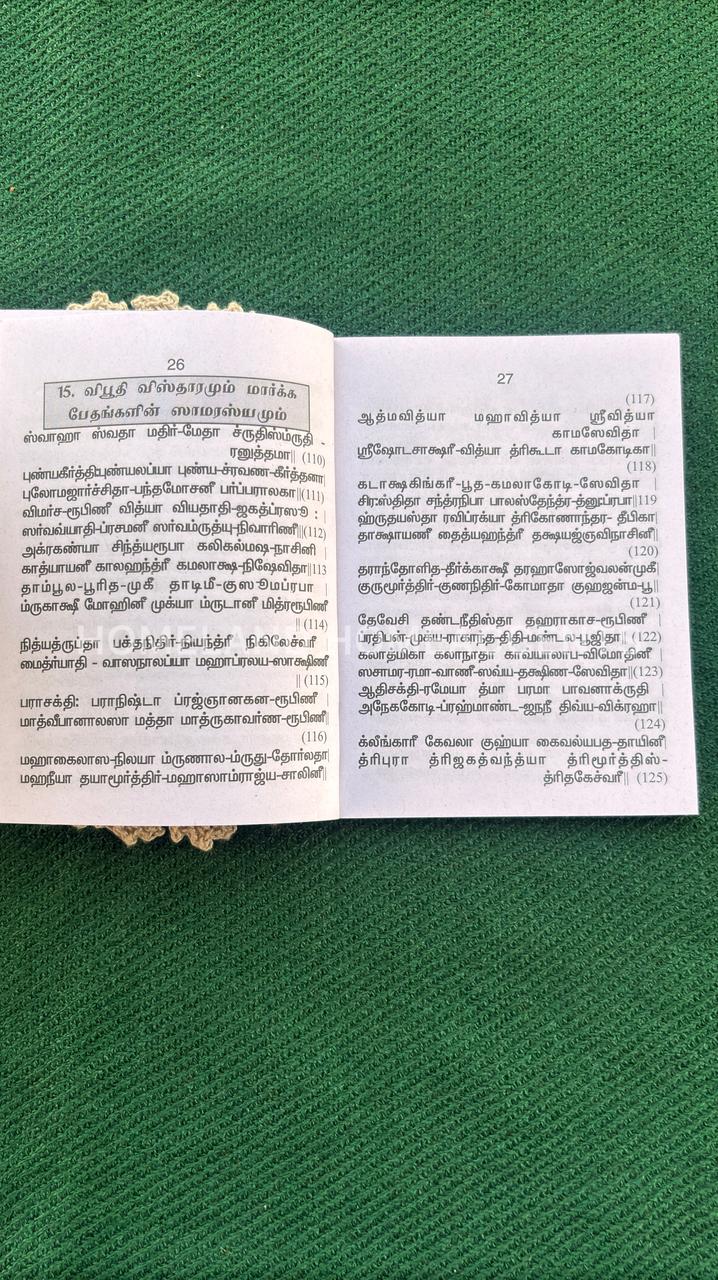 26
15. விபூதி விஸ்தாரமும் மார்க்க
பேதங்களின் ஸாமரஸ்யமும்
ஸ்வாஹா ஸ்வதா மதிர்-மேதா ச்ருதிஸ்ம்ருதி -
ரனுத்தமா|| (110)
புண்யகீர்த்திபுண்யலப்யா புண்ய-ச்ரவண-கீர்த்தனா|
புலோமஜார்ச்சிதா-பந்தமோசனீ பர்ப்பராலகா||(111)
விமர்ச-ரூபிணீ வித்யா வியதாதி-ஜகத்ப்ரஸூ : |
ஸர்வவ்யாதி-ப்ரசமனீ ஸர்வம்ருத்யு-நிவாரிணீ||(112)
அக்ரகண்யா சிந்த்யரூபா கலிகல்மஷ-நாசினீ |
காத்யாயனீ காலஹந்த்ரீ கமலாக்ஷ-நிஷேவிதா||113
தாம்பூல-பூரித-முகீ தாடிமீ-குஸுமப்ரபா |
ம்ருகாக்ஷீ மோஹினீ முக்யா ம்ருடானீ மித்ரரூபிணீ
|| (114)
நித்யத்ருப்தா பக்தநிதிர்-நியந்த்ரீ நிகிலேச்வரீ
மைத்ர்யாதி - வாஸநாலப்யா மஹாப்ரலய-ஸாக்ஷிணீ
|| (115)
பராசக்தி: பராநிஷ்டா ப்ரஜ்ஞானகன-ரூபிணீ |
மாத்வீபானாலஸா மத்தா மாத்ருகாவர்ண-ரூபிணீ||
(116)
மஹாகைலாஸ-நிலயா ம்ருணால-ம்ருது-தோர்லதா|
மஹநீயா தயாமூர்த்திர்-மஹாஸாம்ராஜ்ய-சாலினீ||
27
(117)
ஆத்மவித்யா மஹாவித்யா ஸ்ரீவித்யா
காமஸேவிதா |
ஸ்ரீஷோடசாக்ஷரீ-வித்யா த்ரிகூடா காமகோடிகா||
(118)
கடாக்ஷகிங்கரீ-பூத-கமலாகோடி-ஸேவிதா |
சிர:ஸ்திதா சந்த்ரநிபா பாலஸ்தேந்த்ர-த்னுப்ரபா||119
ஹ்ருதயஸ்தா ரவிப்ரக்யா த்ரிகோணாந்தர- தீபிகா|
தாக்ஷாயணீ தைத்யஹந்த்ரீ தக்ஷயஜ்குவிநாசினீ||
(120)
தராந்தோளித-தீர்க்காக்ஷீ தரஹாஸோஜ்வலன்முகீ
குருமூர்த்திர்-குணநிதிர்-கோமாதா குஹஜன்ம-பூ||
(121)
தேவேசி தண்டநீதிஸ்தா தஹராகாச-ரூபிணீ |
ப்ரதிபன்-முக்ய-ராகாந்த-திதி-மண்டல-பூஜிதா|| (122)
கலாத்மிகா கலாநாதா காவ்யாலாப-விமோதினீ |
ஸசாமர-ரமா-வாணீ-ஸவ்ய-தக்ஷிண-ஸேவிதா||(123)
ஆதிசக்தி-ரமேயா த்மா பரமா பாவனாக்ருதி |
அநேககோடி-ப்ரஹ்மாண்ட-ஜநநீ திவ்ய-விக்ரஹா||
(124)
க்லீங்காரீ கேவலா குஹ்யா கைவல்யபத-தாயினீ|
த்ரிபுரா த்ரிஜகத்வந்த்யா த்ரிமூர்த்திஸ்-
த்ரிதகேச்வரீ|| (125)